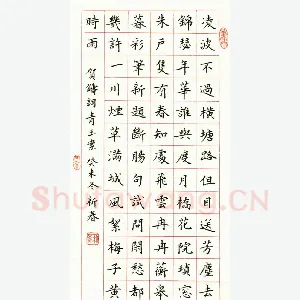 凌波不過橫塘路但目送芳塵去
錦瑟年華誰與度月橋花院瑣窓
朱戶隻有春知處飛雲冉冉蘅皋
暮彩筆新題斷腸句試問閒愁都
幾許一川煙草滿城風絮梅子黃
時雨
賀鑄詞青玉案 癸未冬祈春
Shufawang.CN